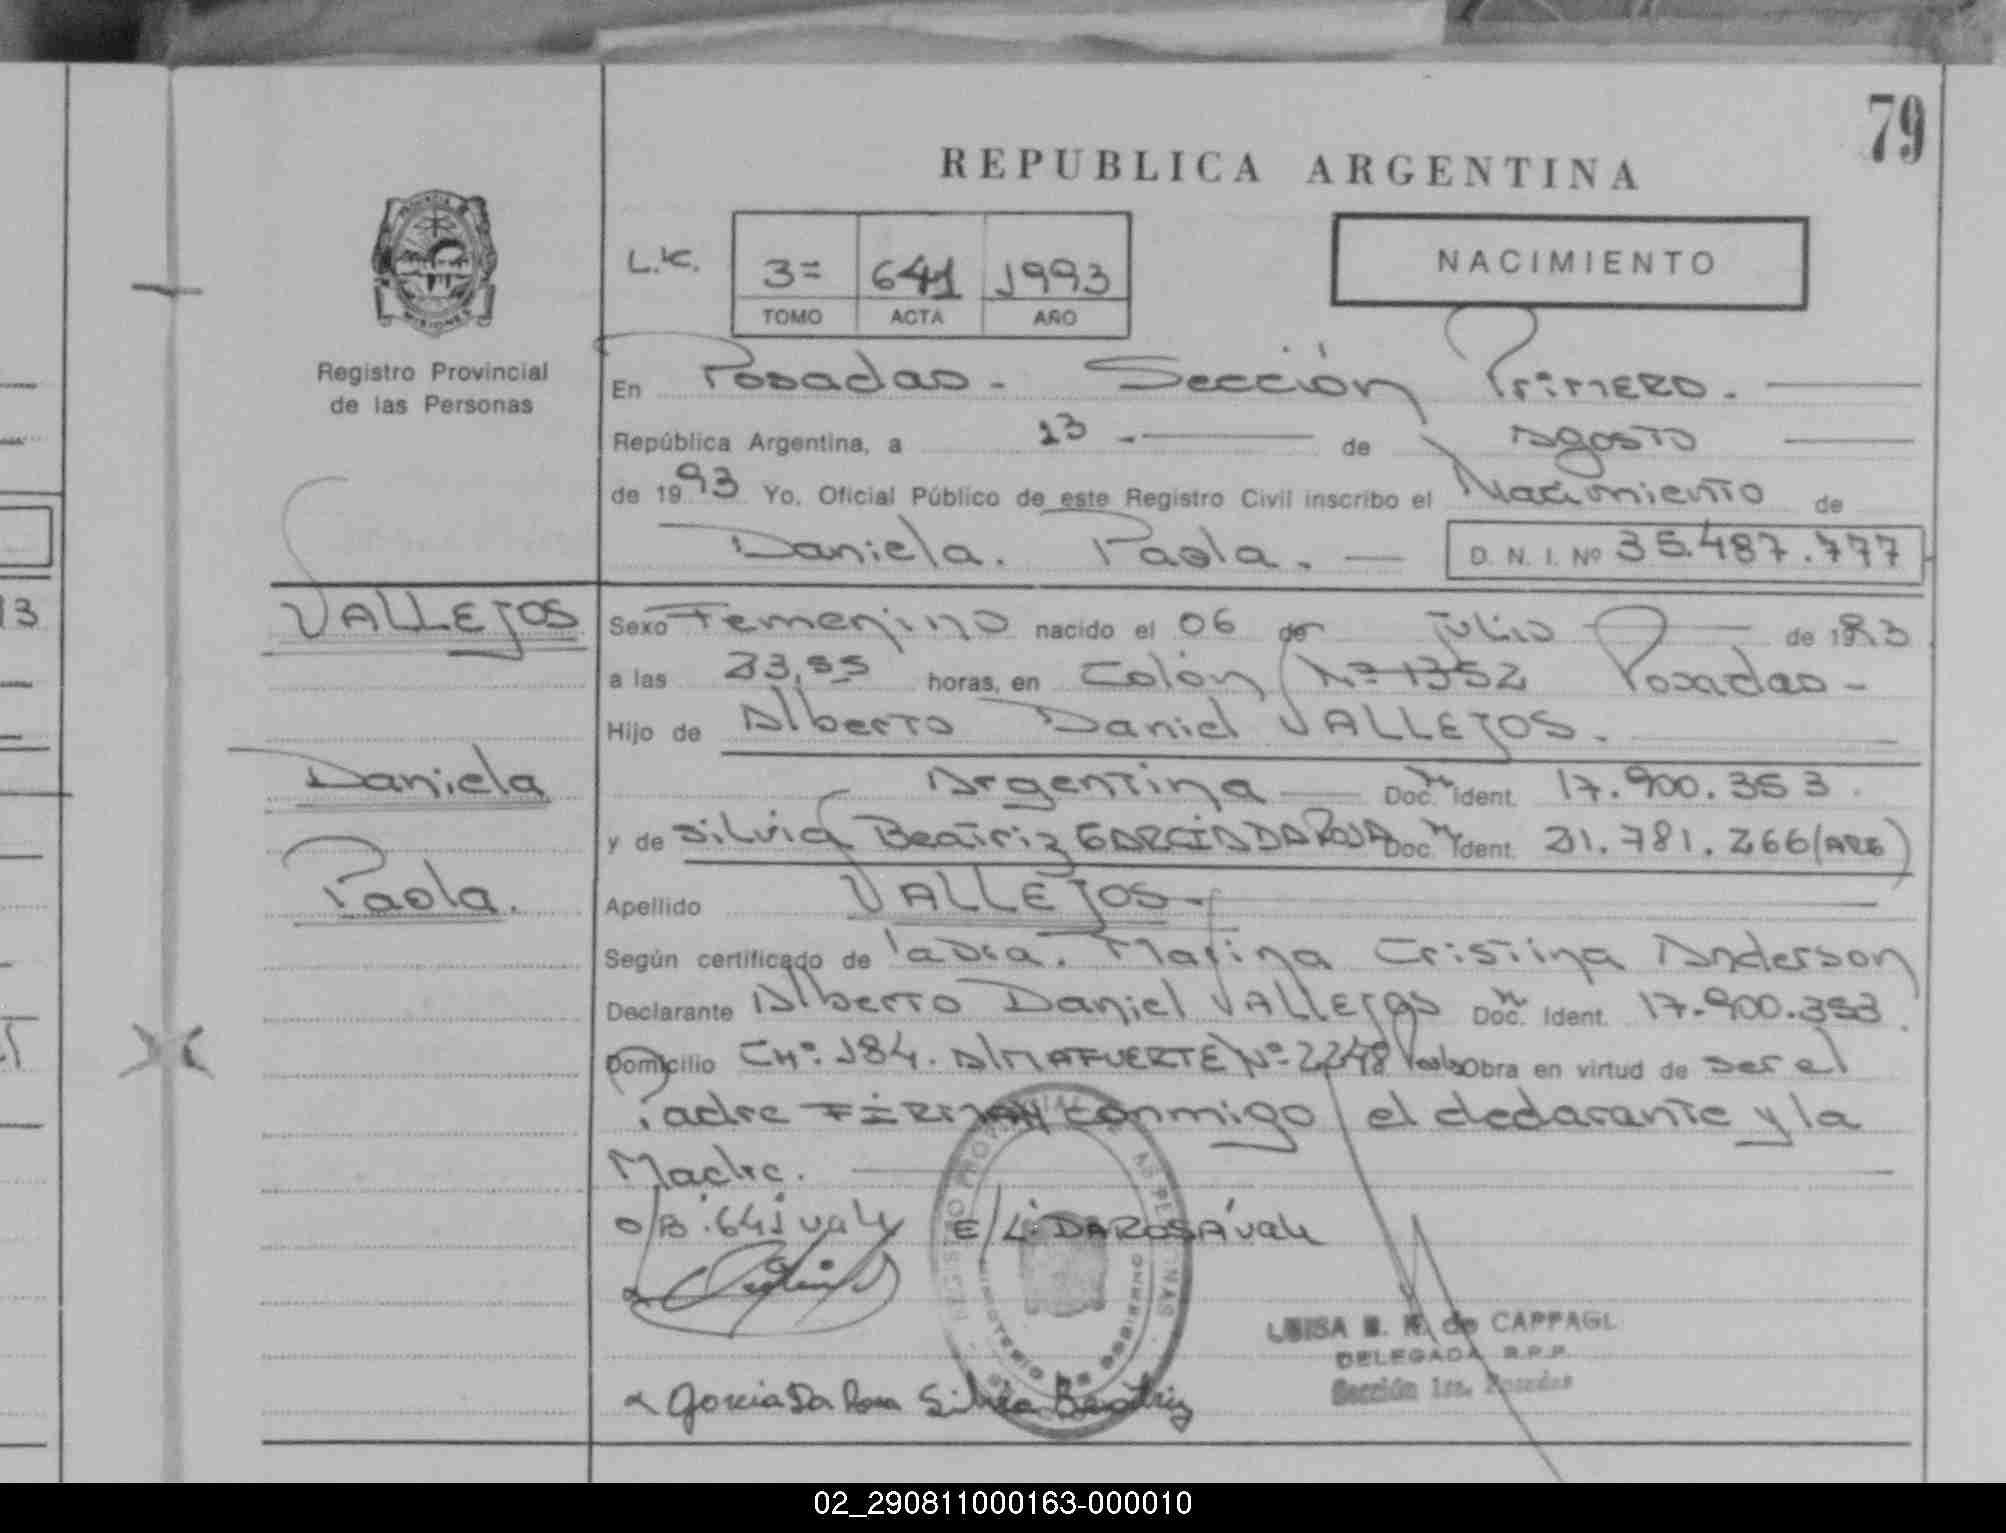 79
REPUBLICA ARGENTINA
MISIONES
Registro Provincial
de las Personas
L.C.
3= 641 1993
TOMO ACTA AÑO
NACIMIENTO
En Posadas - Sección Primera. -
República Argentina, a 13 .- de Agosto
de 1993 Yo, Oficial Público de este Registro Civil inscribo el Nacimiento de
Daniela. Paola. — D. N. I. Nº 35.487.777
VALLEJOS
Daniela
Paola.
Sexo Femenino nacido el 06 de Julio de 1993
a las 23,55 horas, en Colón Nº 1352 Posadas -
Hijo de Alberto Daniel VALLEJOS.
Argentina — Doc. Ident. 17.900.353.
y de Silvia Beatriz GARCIA DA ROSA Doc. Ident. 21.781.266 (ARG)
Apellido VALLEJOS -
Según certificado de la Dra. Marina Cristina Anderson
Declarante Alberto Daniel VALLEJOS Doc. Ident. 17.900.353.
Domicilio CHº. 184. ALMAFUERTE Nº 2248 Pdas Obra en virtud de ser el
Padre FIRMAN conmigo el declarante y la
Madre.
O/B: 641 vale E/L: DA ROSA vale
Garcia Da Rosa Silvia Beatriz
MINISTERIO DE GOBIERNO
LUISA de CAPPAGL
DELEGADA R.P.P.
Sección 1ra. Posadas
02_290811000163-000010